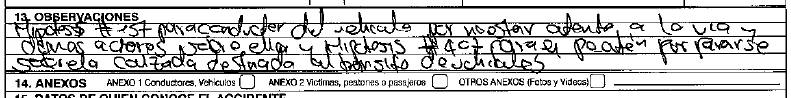 13. OBSERVACIONES
Hipotesis #157 para conductor del vehiculo por no estar atento a la via y
demas actores sobre ella y Hipotesis #407 para el peaton por pararse
sobre la calzada destinada al transito de vehiculos
14. ANEXOS ANEXO 1 Conductores, Vehículos ANEXO 2 Víctimas, peatones o pasajeros OTROS ANEXOS (Fotos y Videos)
15. DATOS DE QUIEN CONOCE EL ACCIDENTE